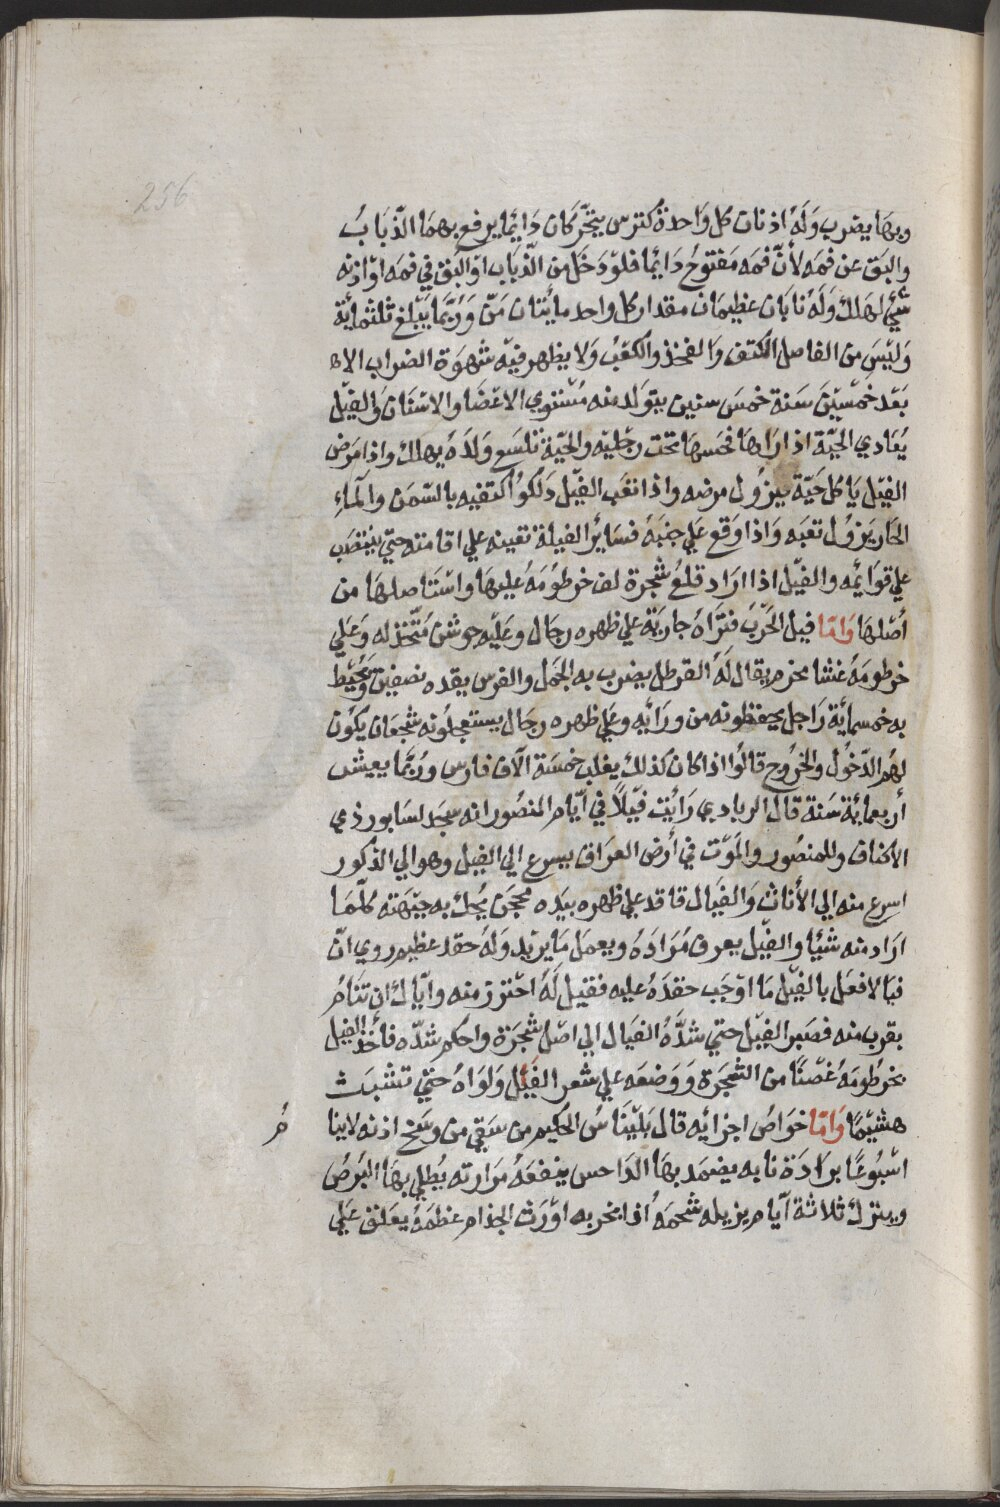 256
وبها يضرب وله اذنان كل واحدة كترس يتحركان دايما يرفع بهما الذباب
والبق عن فمه لأن فمه مفتوح دايما فلو دخل من الذباب او البق في فمه او اذنه
شيء اهلك وله نابان عظيمان مقدار كل واحد مايتان من وربما يبلغ ثلثماية
وليس من الفاصل الكتف والفخذ والكعب ولا يظهر فيه شهوة الضراب الا
بعد خمسين سنة خمس سنين يتولد منه مستوي الاعضا والاسنان والفيل
يعادي الحية اذا راها فحسها تحت رجليه والحية تلسع ولده يهلك واذا مرض
الفيل ياكل حية يزول مرضه واذا تعب الفيل دلكوا كتفيه بالسمن والماء
الحار يزول تعبه واذا وقع علي جنبه فساير الفيلة تعينه علي اقامته حتي ينتصب
علي قوايمه والفيل اذا اراد قلع شجرة لف خرطومه عليها واستاصلها من
أصلها واما فيل الحرب فتراه جارية علي ظهره رجال وعليه جوشن متخذ له وعلي
خرطومه غشا مخرم يقال له القرطل يضرب به الجمل والفرس يقده نصفين ويحيط
به خمسماية راجل يحفظونه من ورايه وعلي ظهره رجال يستعجلونه شجعان يكون
لهم الدخول والخروج قالوا اذا كان كذلك يغلب خمسة آلاف فارس وربما يعيش
أربعمائة سنة قال الريادي رايت فيلا في أيام المنصور انه سجد لسابور ذي
الاكتاف وللمنصور والموت في أرض العراق يسرع الي الفيل وهو الي الذكور
اسرع منه الي الأناث والفيال قاقد علي ظهره بيده محجن يحك به جبهته كلما
اراد منه شيئا والفيل يعرف مراده ويعمل ما يريد وله حقد عظيم روي ان
فيالا فعل بالفيل ما اوجب حقده عليه فقيل له احترز منه واياك ان تنام
بقرب منه فصبر الفيل حتي شده الفيال الي اصل شجرة واحكم شده فأخذ الفيل
بخرطومه غصنا من الشجرة ووضعه علي شعر الفيل ولواه حتي تشبث
هشيما واما خواص اجزائه قال بليناس الحكيم من سقي من وسخ اذنه لا ينا
م
اسبوعا برادة نابه يضمد بها الداحس ينفعه مرارته يطلي بها البرص
ويترك ثلاثة أيام يزيله شحمه اذا بخر به اورث الجذام عظمه يعلق علي